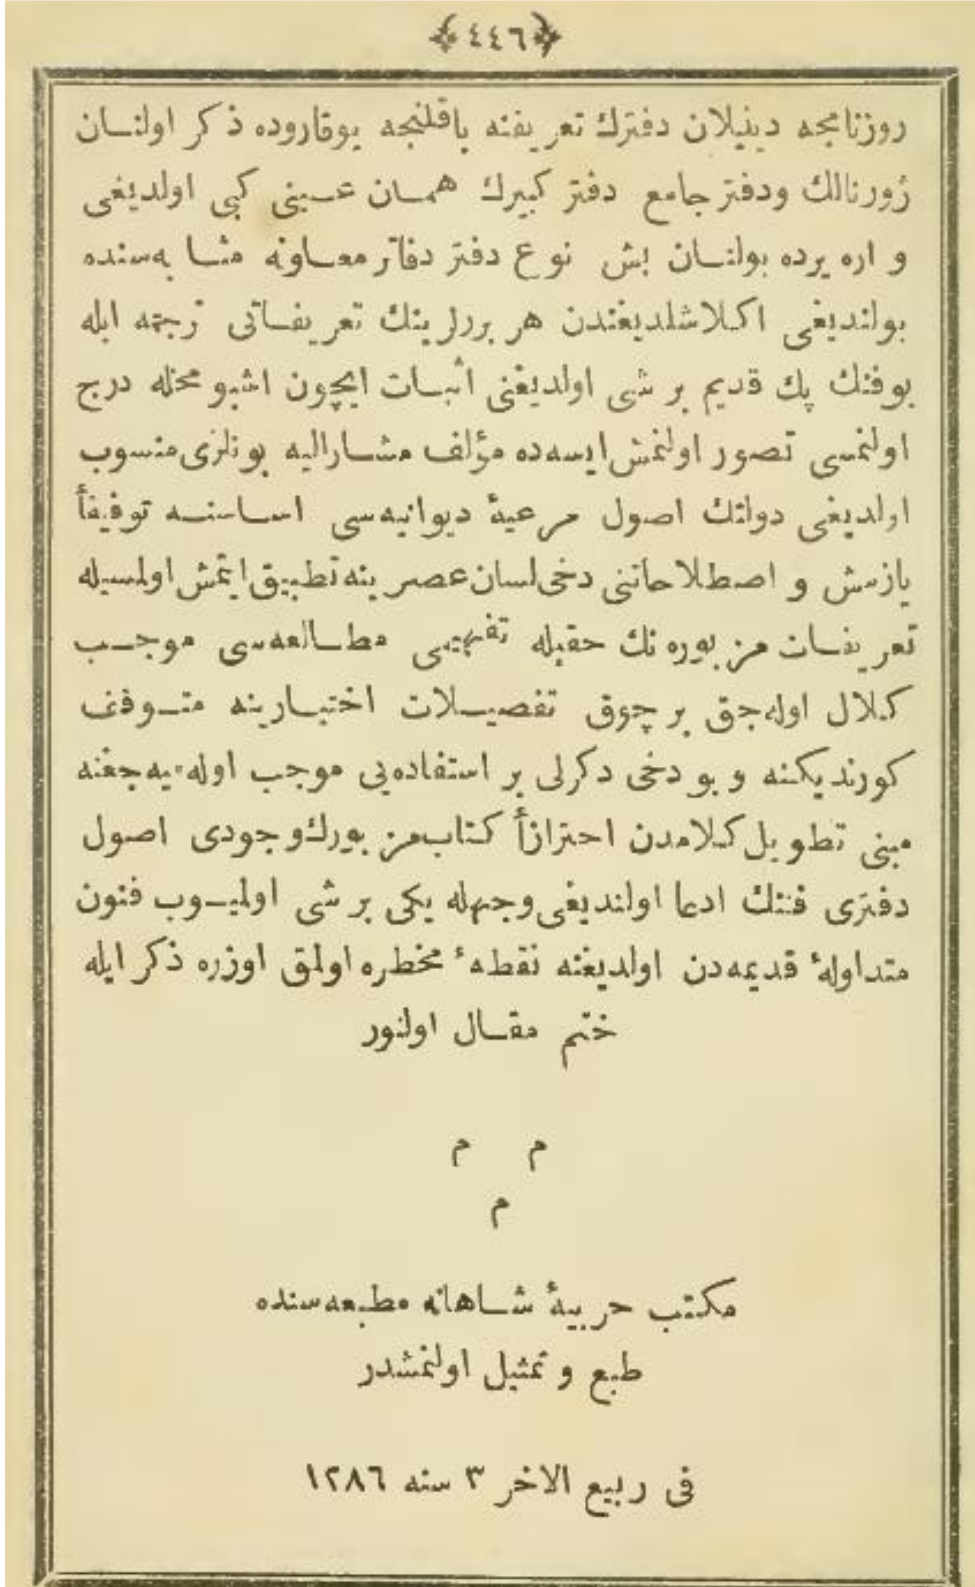 ﴿٤٤٦﴾
روزنامجه دینیلان دفترك تعریفنه باقلنجه یوقاروده ذکر اولنان
ژورنالك ودفتر جامع دفتر کبیرك همان عینی کبی اولدیغی
و اره یرده بولنان بش نوع دفتر دفاتر معاونه مثابه‌سنده
بولندیغی اکلاشلدیغندن هر بررلرینك تعریفاتی ترجمه ایله
بوفنك پك قدیم بر شی اولدیغنی اثبات ایچون اشبو محله درج
اولنمسی تصور اولنمش ایسه‌ده مؤلف مشارالیه بونلری منسوب
اولدیغی دولتك اصول مرعیهٔ دیوانیه‌سی اساسنه توفیقاً
یازمش و اصطلاحاتنی دخی لسان عصرینه تطبیق ایتمش اولمسیله
تعریفات مزبوره‌نك حقیله تفهیمی مطالعه‌سی موجب
کلال اوله‌جق بر چوق تفصیلات اختیارینه متوقف
کورندیکنه و بو دخی دکرلی بر استفاده‌یی موجب اوله‌میه‌جغنه
مبنی تطویل کلامدن احترازاً کتاب مزبورك وجودی اصول
دفتری فننك ادعا اولندیغی وجهله یکی بر شی اولمیوب فنون
متداولهٔ قدیمه‌دن اولدیغنه نقطهٔ مخطره اولمق اوزره ذکر ایله
ختم مقال اولنور
م م
م
مکتب حربیهٔ شاهانه مطبعه‌سنده
طبع و تمثیل اولنمشدر
فی ربیع الاخر ٣ سنه ١٢٨٦